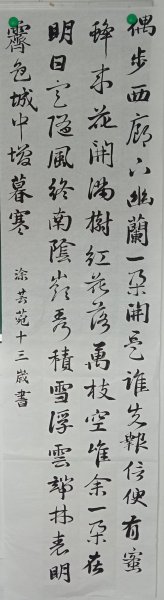 偶步西廊下幽蘭一朵開是誰先報信便有蜜
蜂来花開滿樹紅花落萬枝空唯余一朵在
明日定随風終南陰嶺秀積雪浮雲端林表明
霽色城中增暮寒
涂芸苑十三歲書